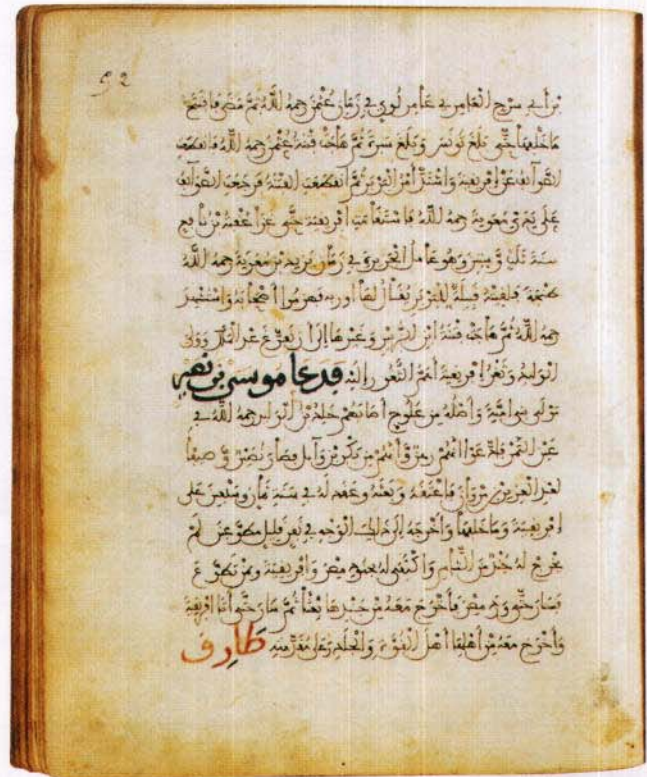 52
بن أبي سرح العامري عامر لوي في زمان عثمن رحمه الله ثم مضى فافتتح
ما خلفها حتى بلغ تونس وبلغ سبرة ثم هاجت فتنة عثمن رحمه الله فانقطعت
الطوائف عن إفريقية واشتد أمر البربر ثم انقطعت الفتنة فرجعت الطوائف
على يدي معوية رحمه الله فاستقامت إفريقية حتى غزا عقبة بن نافع
سنة وهو عامل في زمان يزيد بن معوية رحمه الله
فلقيته قبيلة للبربر يقال لها أوربة فهزموا أصحابه واستشهد
رحمه الله ثم هاجت فتنة ابن الزبير وغيرها إلى أن عبد الملك وولى
الوليد وثغر إفريقية أهم الثغور إليه فدعا موسى بن نصير
مولى بني أمية وأصله من علوج أصابهم خلد بن الوليد رحمه الله في
عين التمر فادعوا أنهم رهن وأنهم من بكر بن وايل فصار نصير وصيفا
لعبد العزيز بن مروان فأعتقه وبعثه وعقد له في سنة ثمان وسبعين على
إفريقية وما خلفها وأخرجه إلى ذلك الوجه في نفر قليل مطوعين لم
يخرج له جند من الشام واكتفى له بجند مصر وإفريقية ومن تطوع
فسار حتى ورد مصر فأخرج معه من جندها بعثا ثم سار حتى أتا إفريقية
وأخرج معه من أهلها أهل القوة والجلد وعلى مقدمته طارق